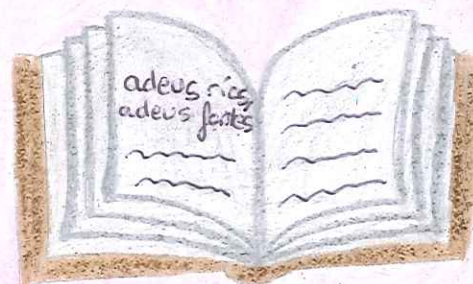 adeus rios,
adeus fontes